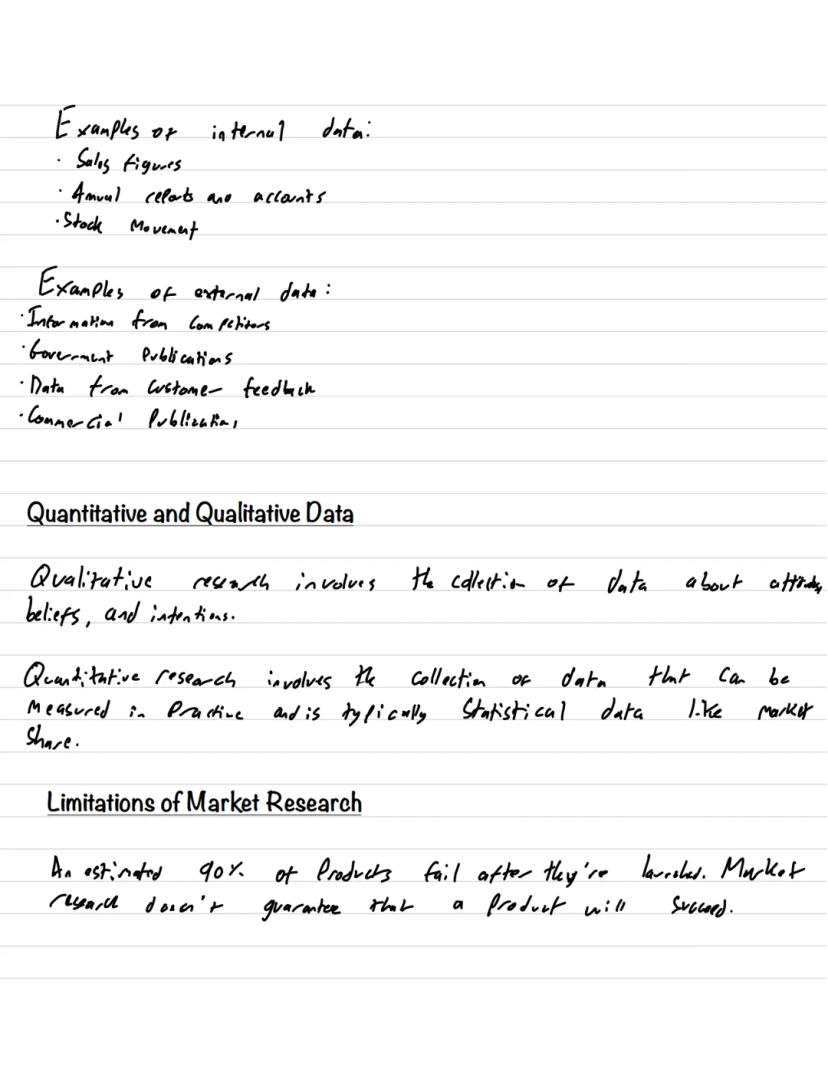 Examples of internal data:
· Sales figures
· Annual reports and accounts
· Stock Movement
Examples of external data:
· Information from Competitors
· Government Publications
· Data from Customer feedback
· Commercial Publications
Quantitative and Qualitative Data
Qualitative research involves the collection of data about attitudes,
beliefs, and intentions.
Quantitative research involves the collection of data that can be
measured in Practice and is typically Statistical data like market
share.
Limitations of Market Research
An estimated 90% of Products fail after they're launched. Market
research doesn't guarantee that a Product will succeed.